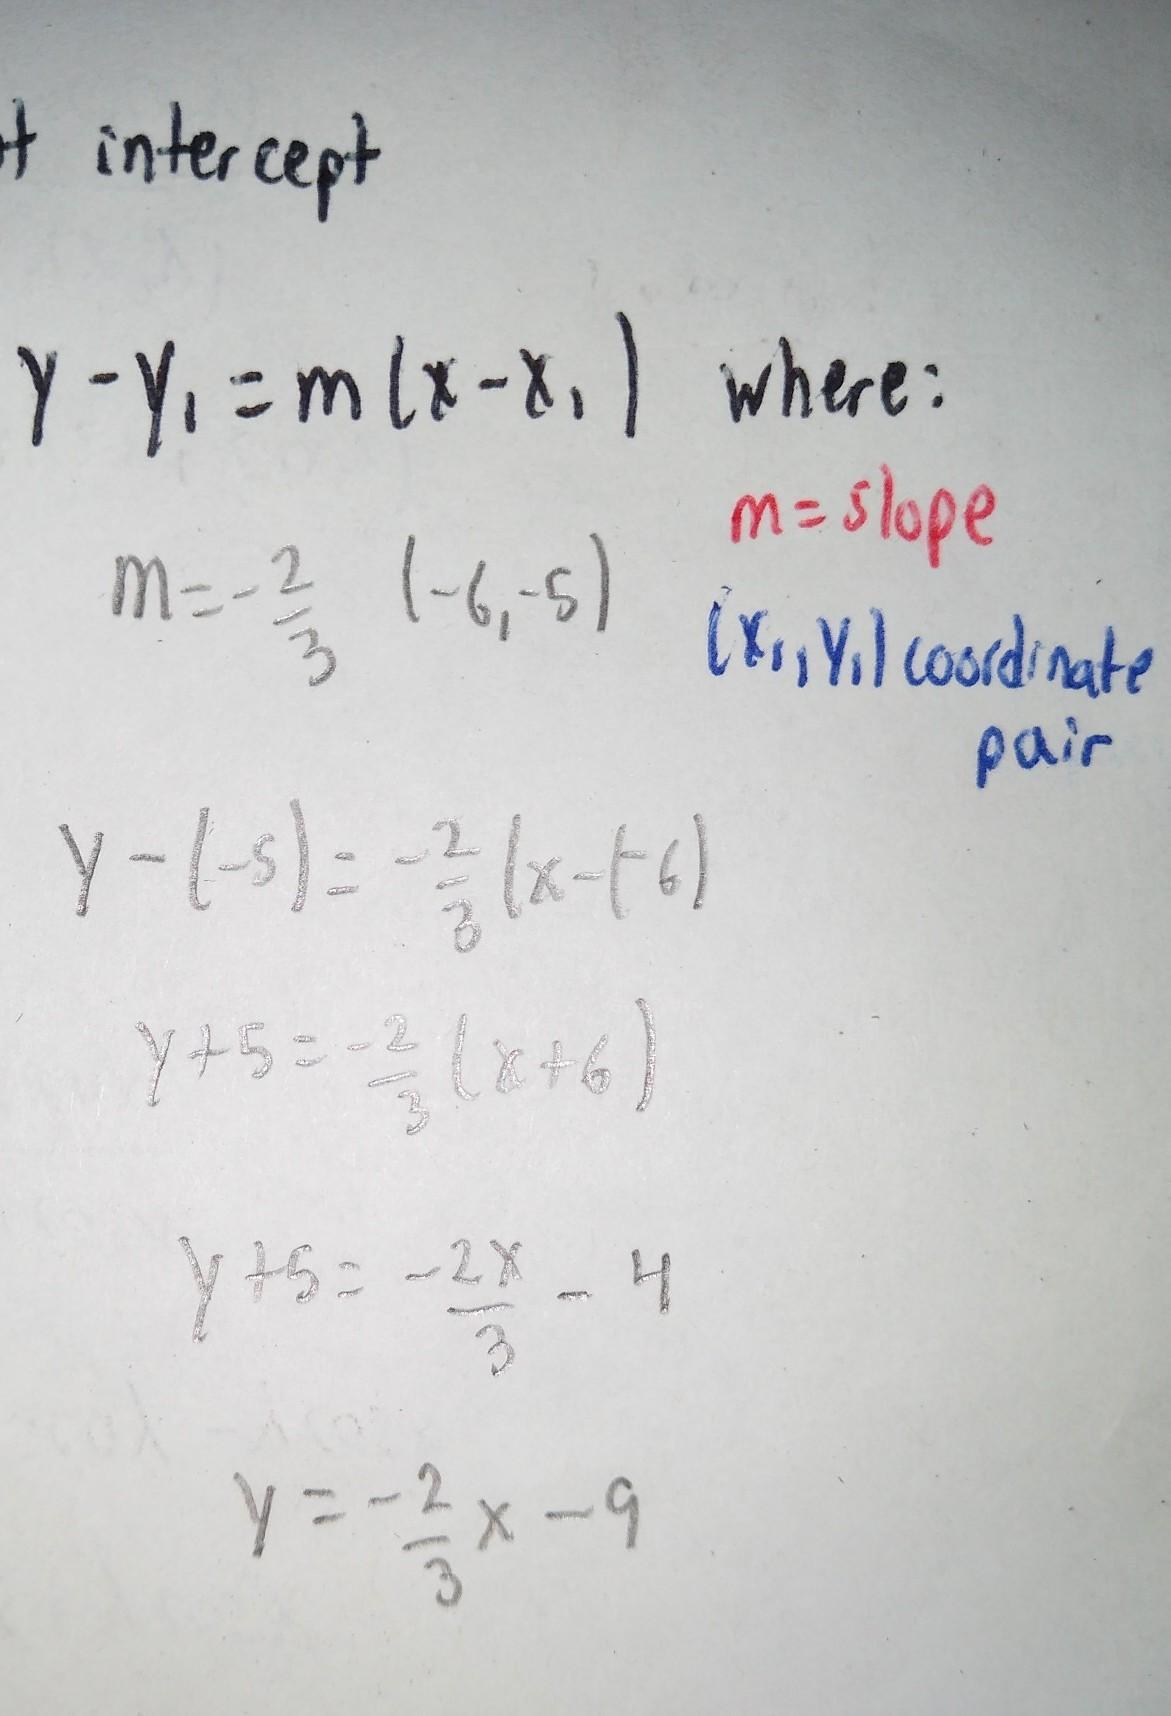 t intercept
y - y₁ = m(x - x₁) where:
m = slope
m = -2/3 (-6, -5)
(x₁, y₁) coordinate
pair
y - (-5) = -2/3 (x - (-6)
y + 5 = -2/3 (x + 6)
y + 5 = -2x/3 - 4
y = -2/3 x - 9